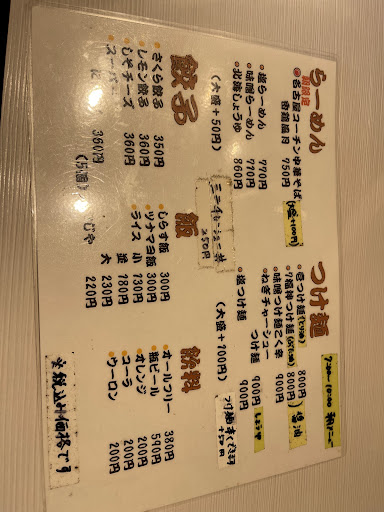 らーめん
期間限定
名古屋コーチン中華そば
750円
塩らーめん 770円
味噌らーめん 770円
北海しょうゆ 860円
(大盛+50円)
餃子
さくら餃子 350円
レモン餃子 360円
しそチーズ 360円
360円
つけ麺
7:00~10:00
800円
800円
味噌つけ麺こく辛 900円
ねぎチャーシュー
つけ麺 900円
塩つけ麺 900円
(大盛+100円)
+50円
飯
250円
しらす飯 300円
ツナマヨ飯 300円
ライス 小 130円
並 180円
大 230円
220円
飲料
オールフリー 380円
瓶ビール 590円
オレンジ 200円
コーラ 200円
ウーロン 200円
※税込み価格です